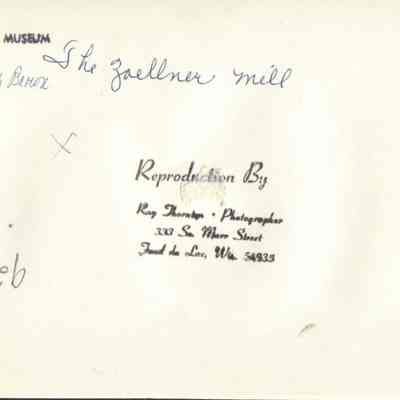 MUSEUM
The Zoellner mill
X
Reproduction By
Ray Thornton • Photographer
333 So. Marr Street
Fond du Lac, Wis. 54935